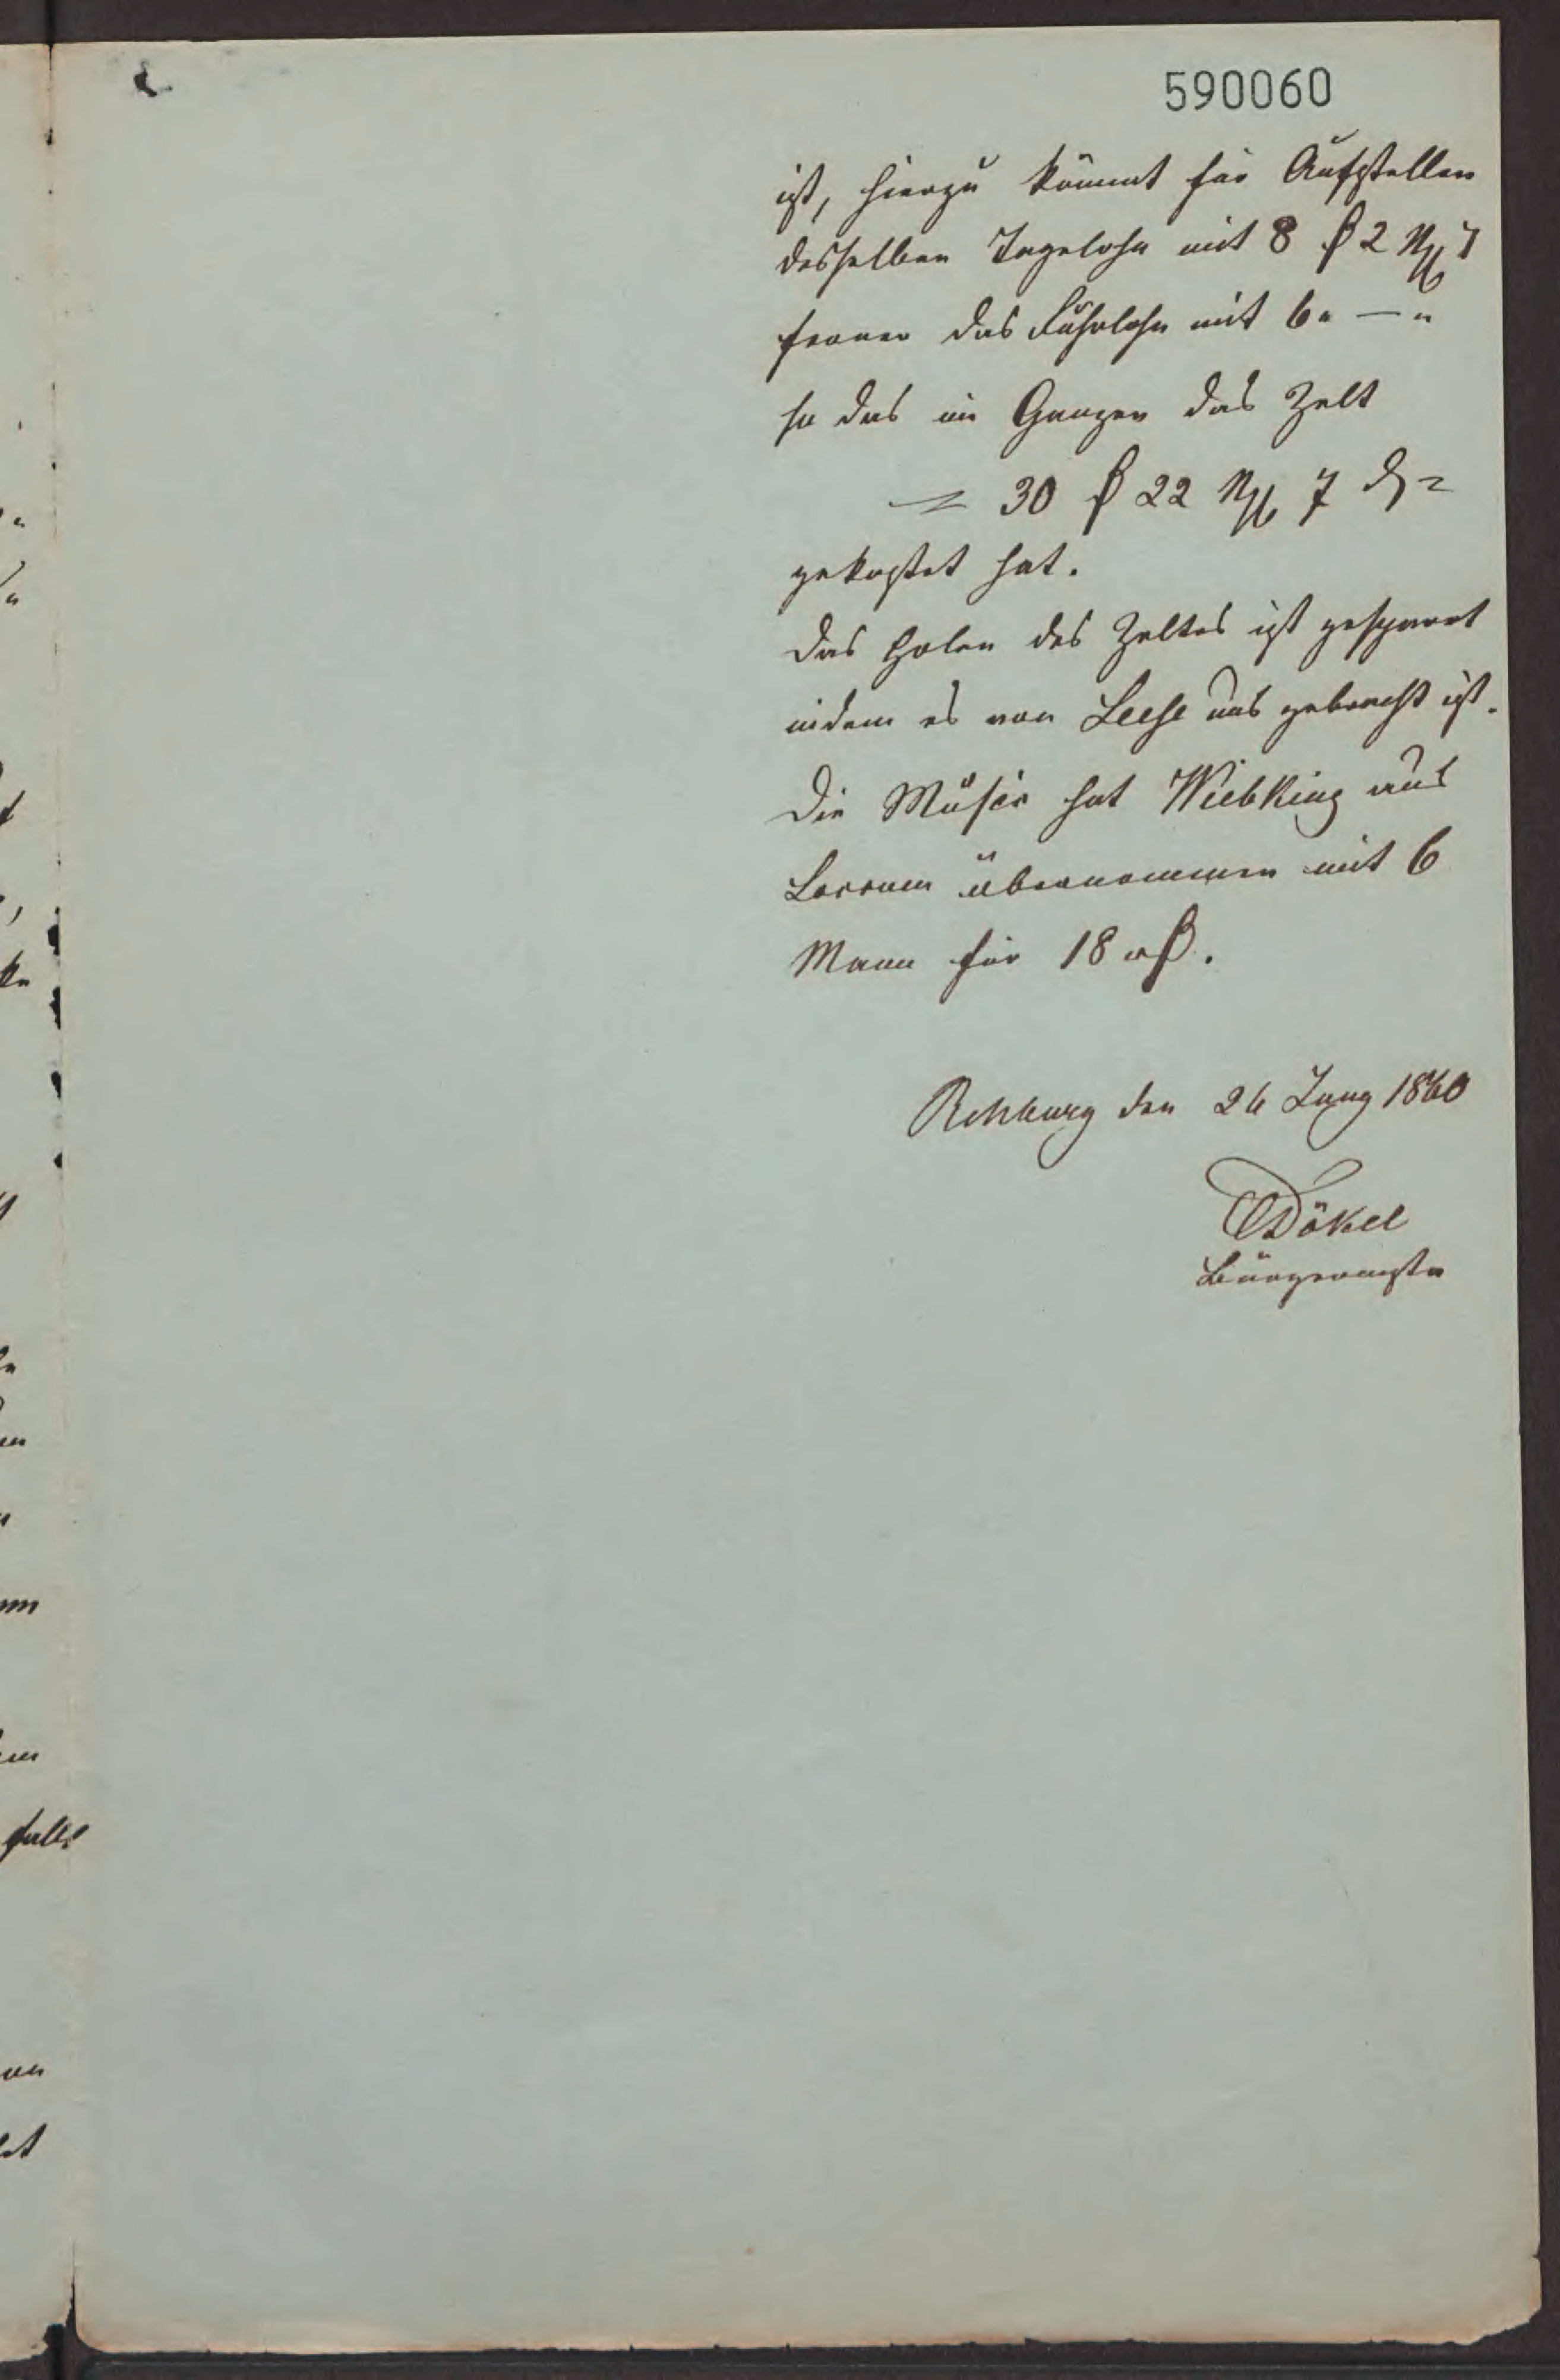 590060
ist, hierzu kömmt für Aufstellen
desselben Tagelohn mit 8 ₰ 2 Ngr 7
ferner das Fuhrlohn mit 6 " — "
so das im Ganzen das Zelt
= 30 ₰ 22 Ngr 7 ₰ =
gekostet hat.
Das Holen des Zeltes ist gespart
indem es von Leese uns gebracht ist.
Die Musik hat Wiebking aus
Loccum übernommen mit 6
Mann für 18 ₰.
Rehburg den 26 Juny 1860
Dökel
Bürgermstr
falls